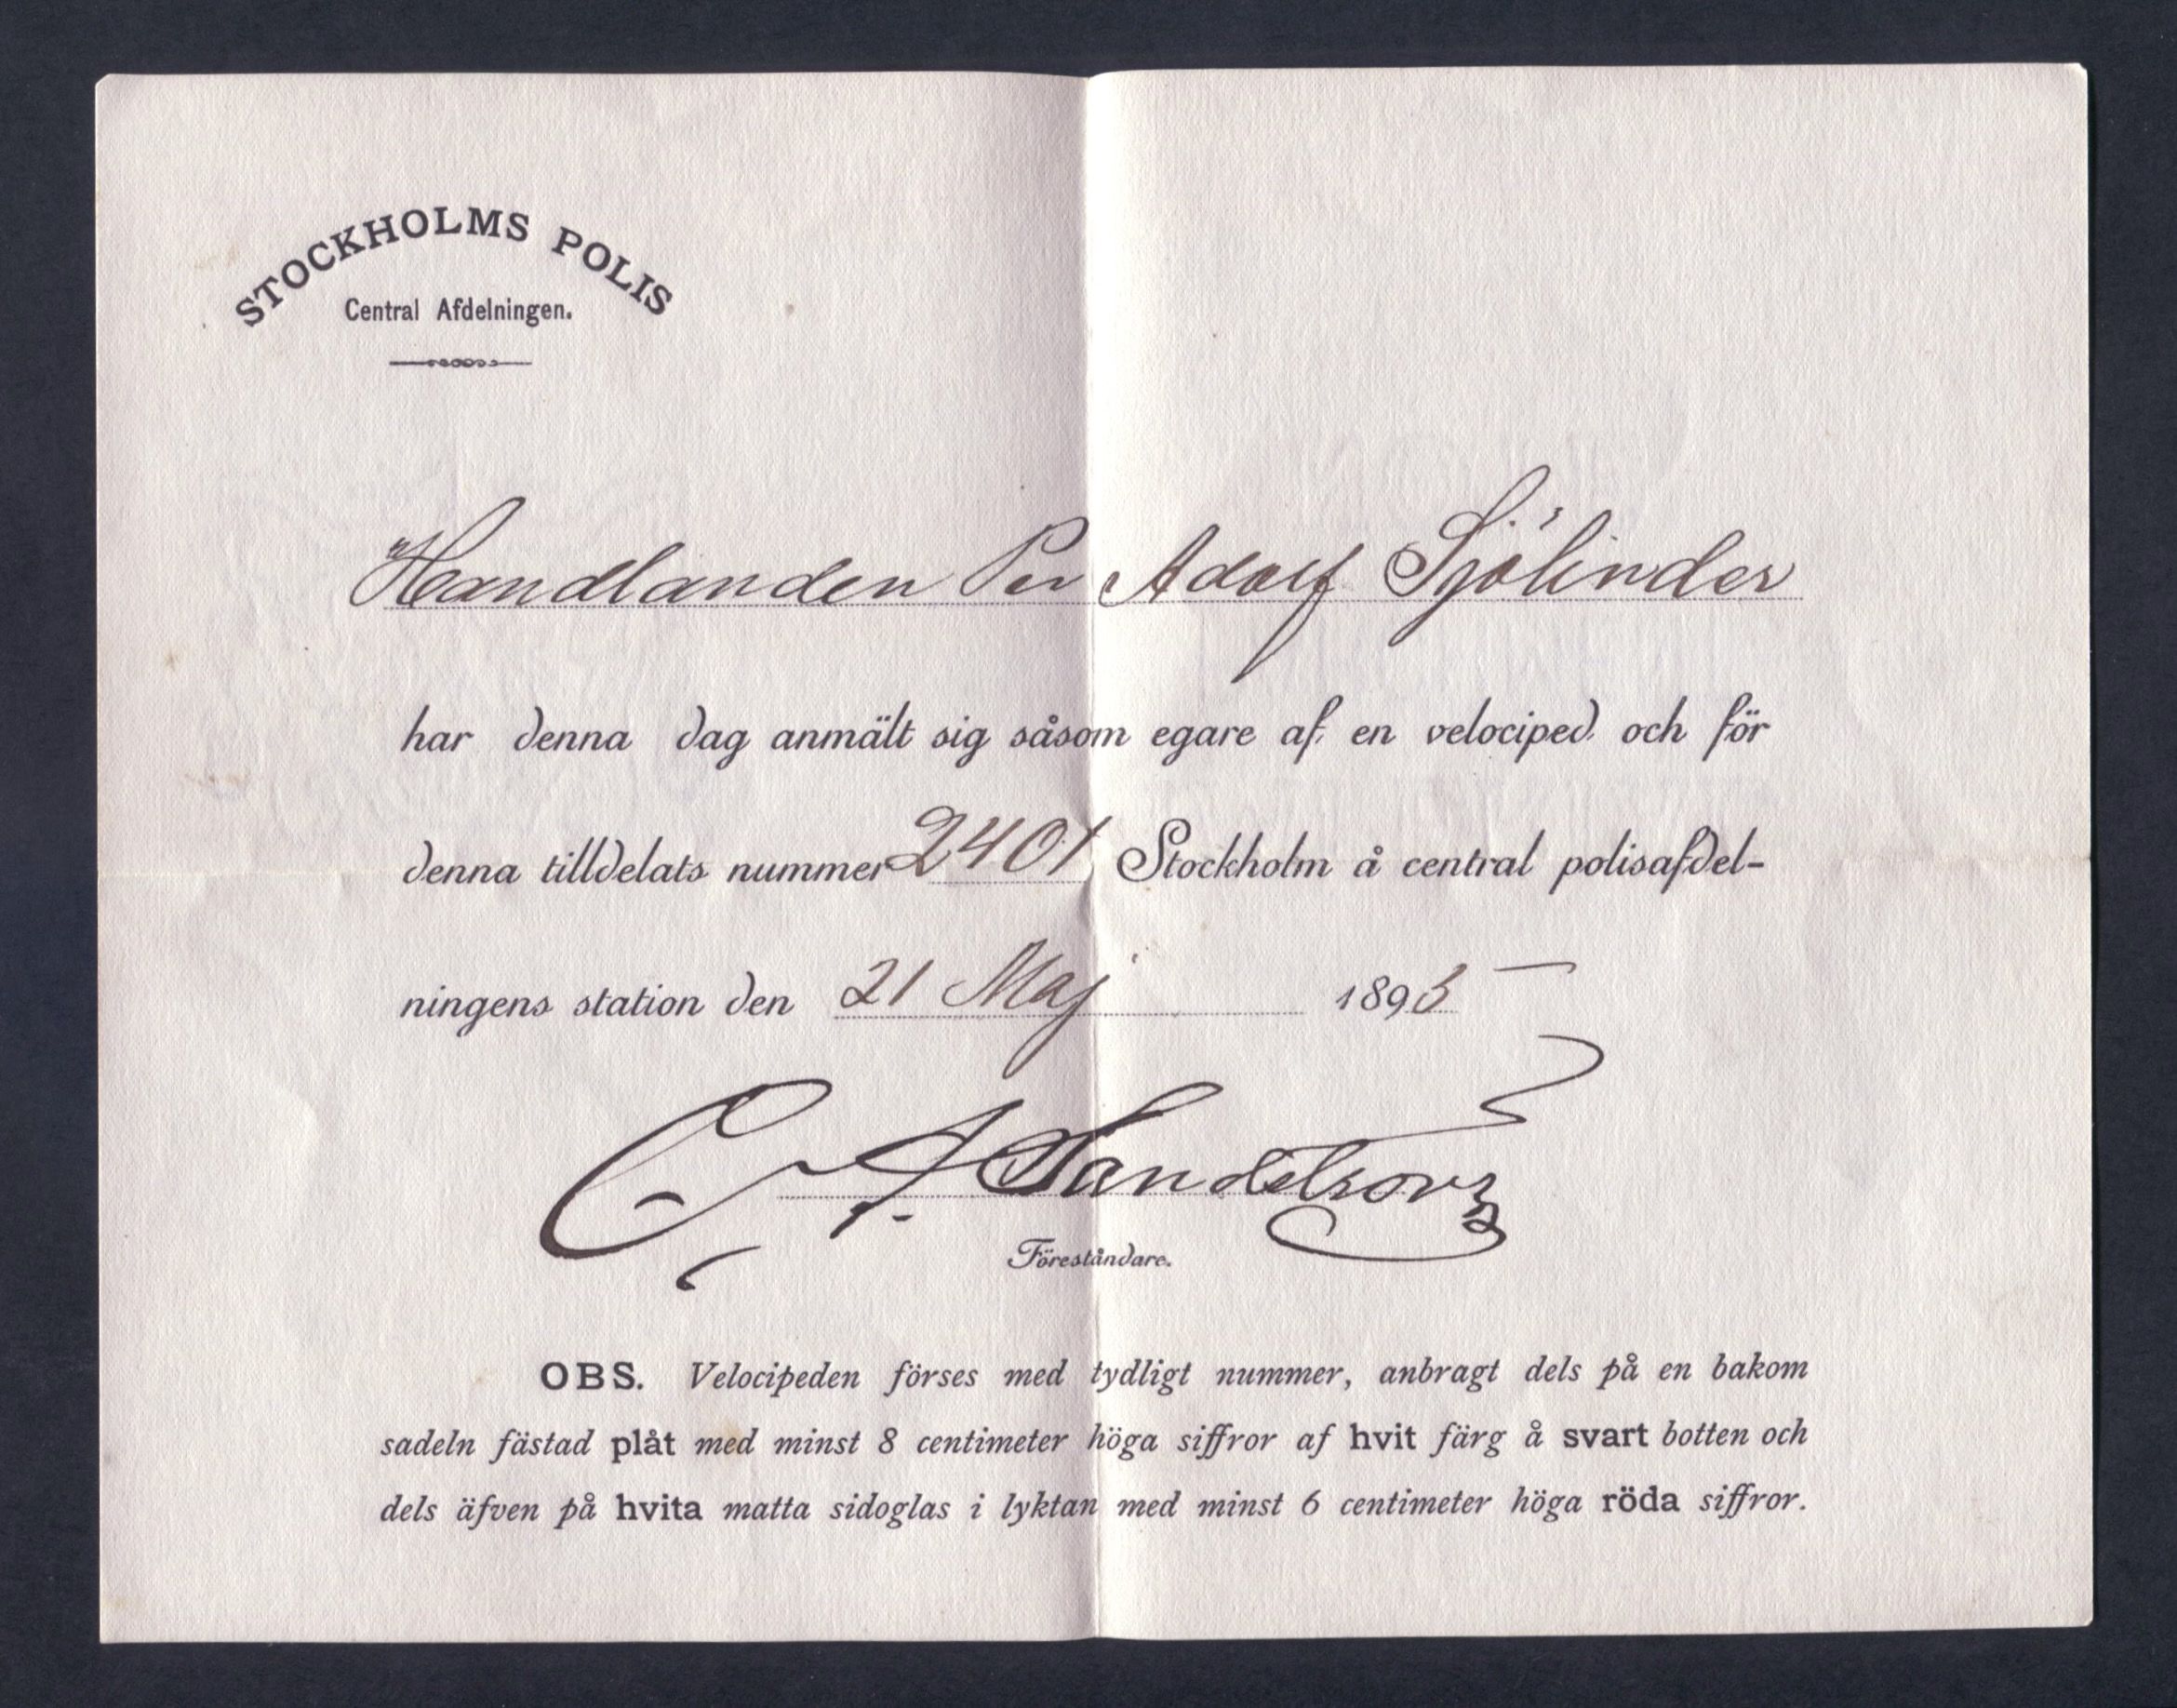 STOCKHOLMS POLIS
Central Afdelningen.
Handlanden Per Adolf Sjölinder
har denna dag anmält sig såsom egare af en velociped och för
denna tilldelats nummer 2401 Stockholm å central polisafdel-
ningens station den 21 Maj 1895
C. A. Sandelson
Föreståndare.
OBS. Velocipeden förses med tydligt nummer, anbragt dels på en bakom
sadeln fästad plåt med minst 8 centimeter höga siffror af hvit färg å svart botten och
dels äfven på hvita matta sidoglas i lyktan med minst 6 centimeter höga röda siffror.